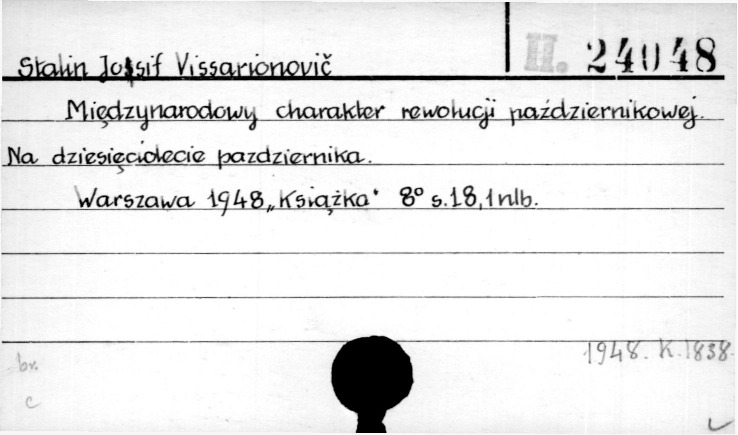 Stalin Josif Vissarionovič
II. 24048
Międzynarodowy charakter rewolucji październikowej.
Na dziesięciolecie pazdziernika.
Warszawa 1948 „Książka" 8° s.18, 1 nlb.
1948. K. 1838.
br.
c